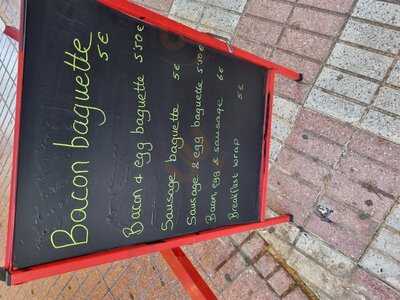 Bacon baguette 5€
Bacon & egg baguette 5.50€
Sausage baguette 5€
Sausage & egg baguette 5.50€
Bacon, egg & sausage 6€
Breakfast wrap 5€